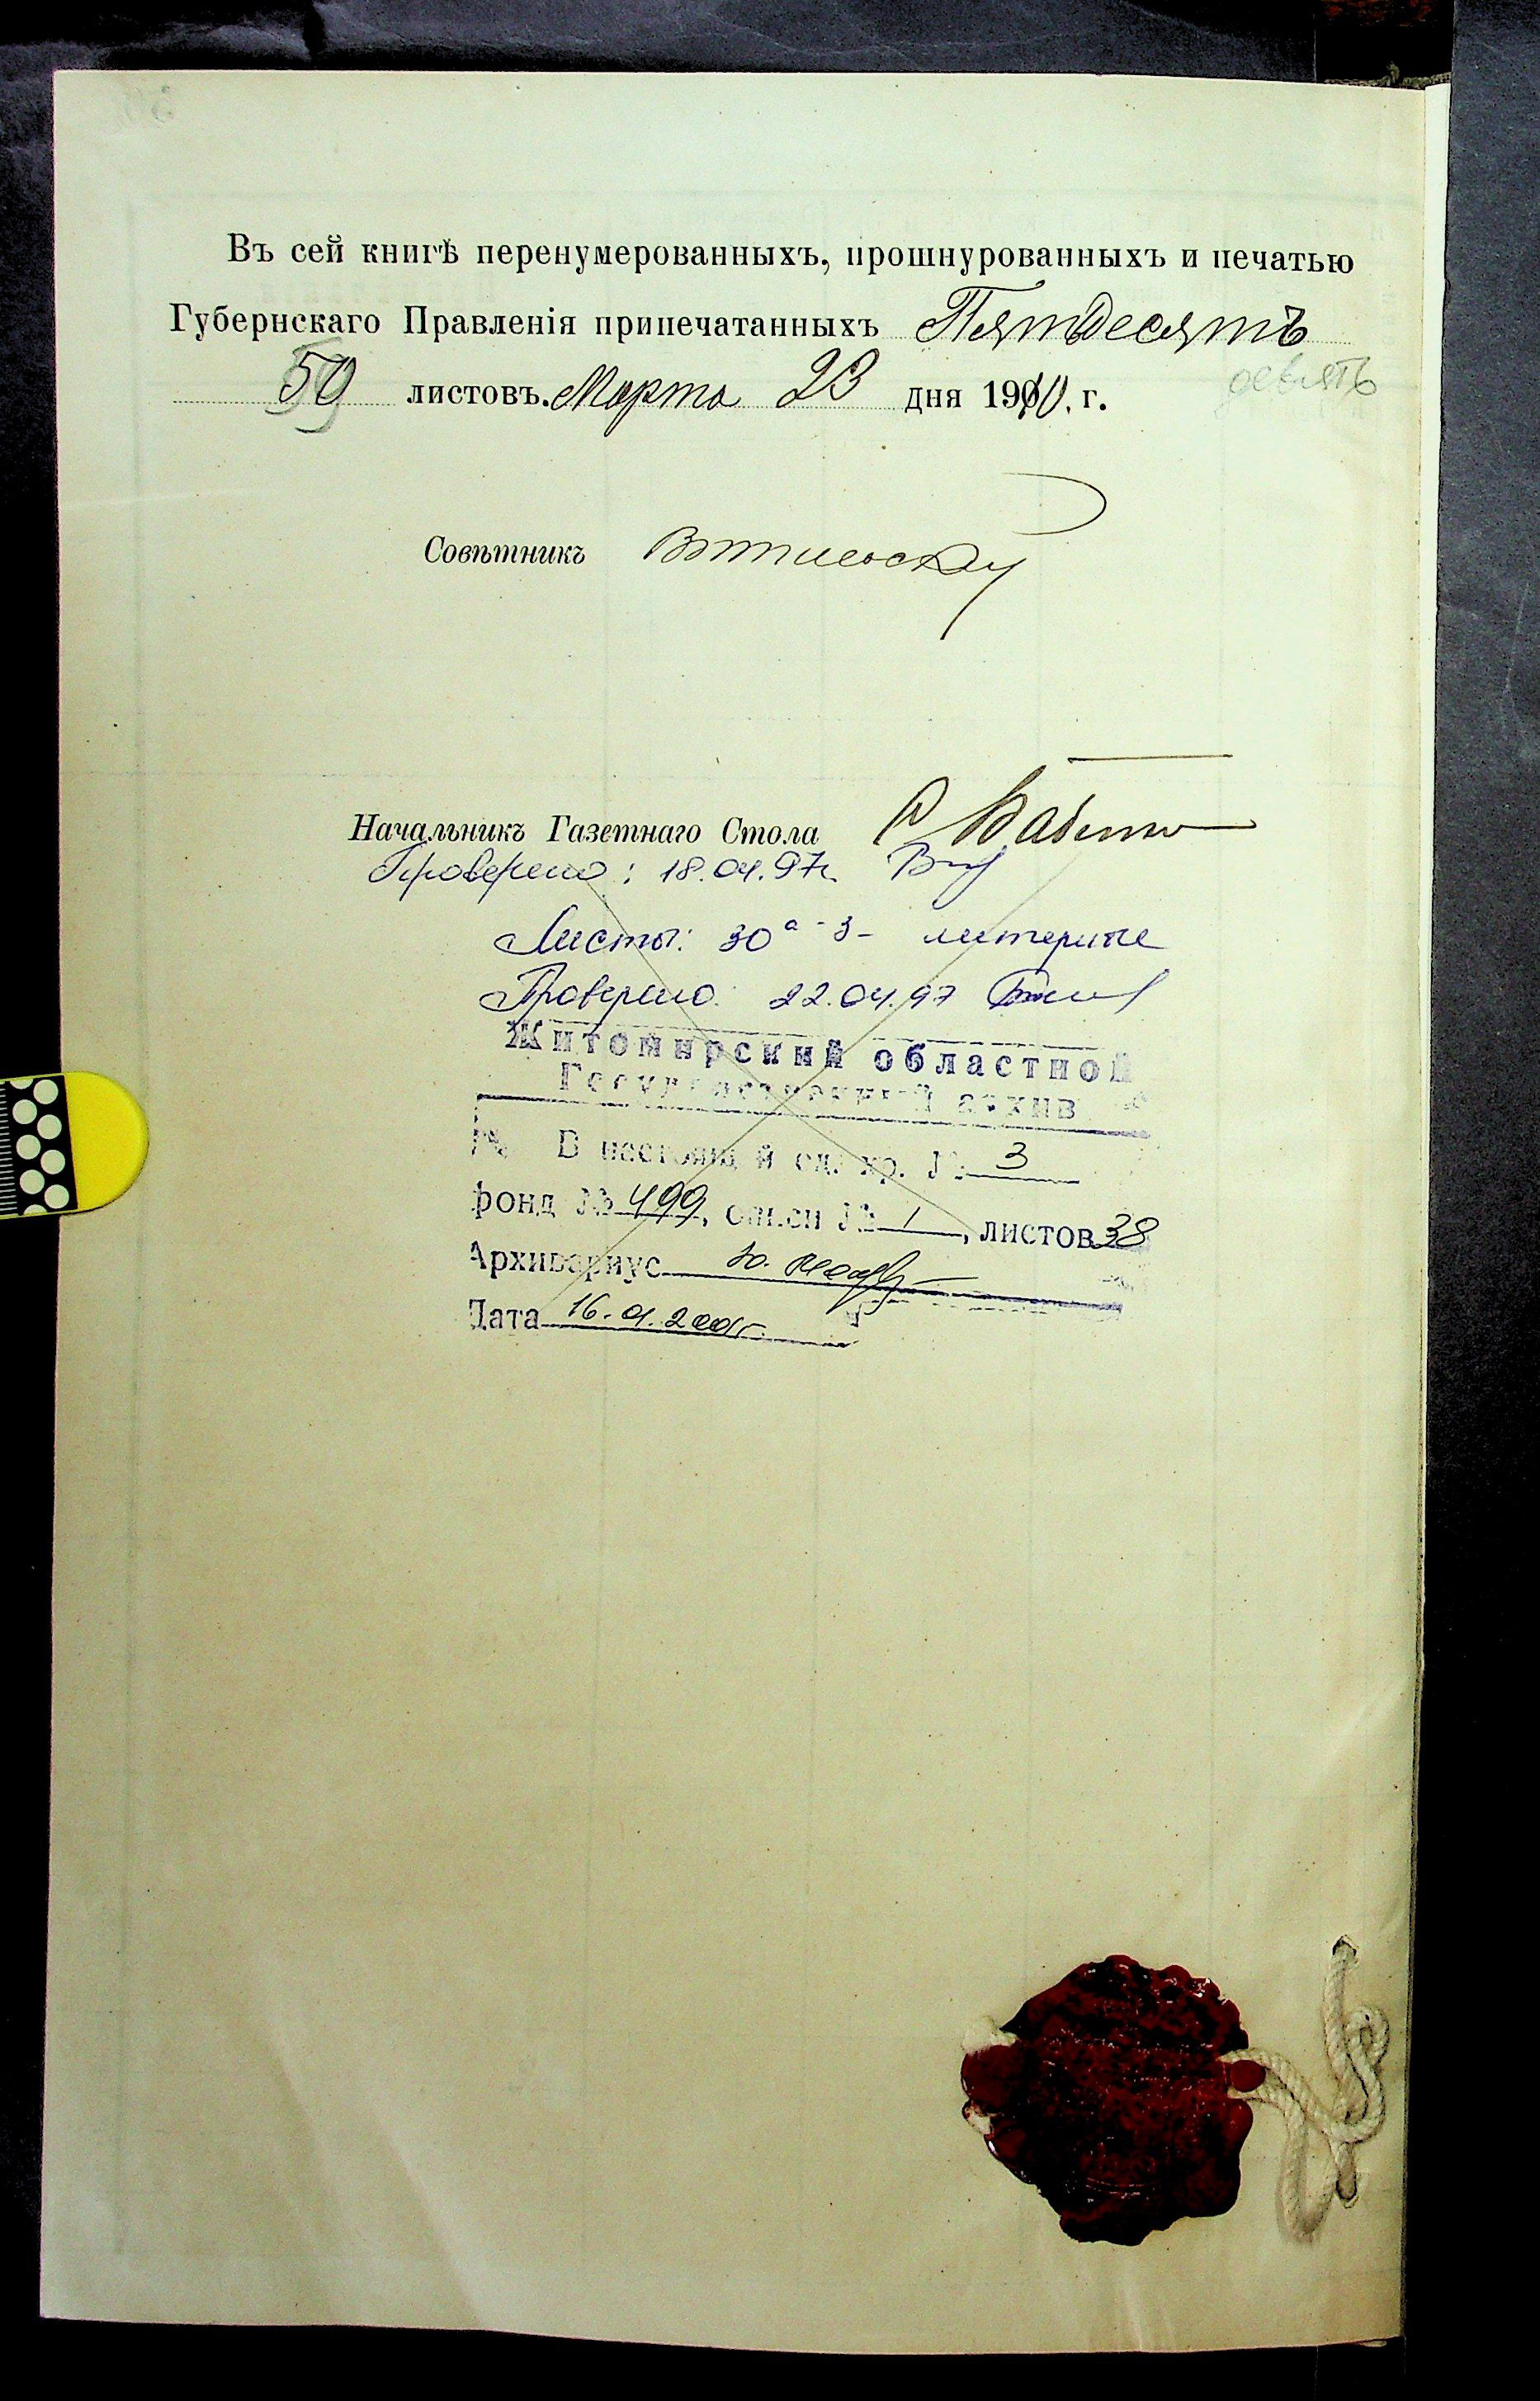 Въ сей книгѣ перенумерованныхъ, прошнурованныхъ и печатью
Губернскаго Правленія припечатанныхъ Пятьдесятъ
девять
50 листовъ. Марта 23 дня 1910. г.
Совѣтникъ
Начальникъ Газетнаго Стола
Проверено: 18.04.97г.
Листы: 30а-з- литерные
Проверено: 22.04.97
Житомирский областной
Государственный архив
В настоящей ед. хр. № 3
фонд № 499, описи № 1, листов 38
Архивариус
Дата 16.01.2001г.